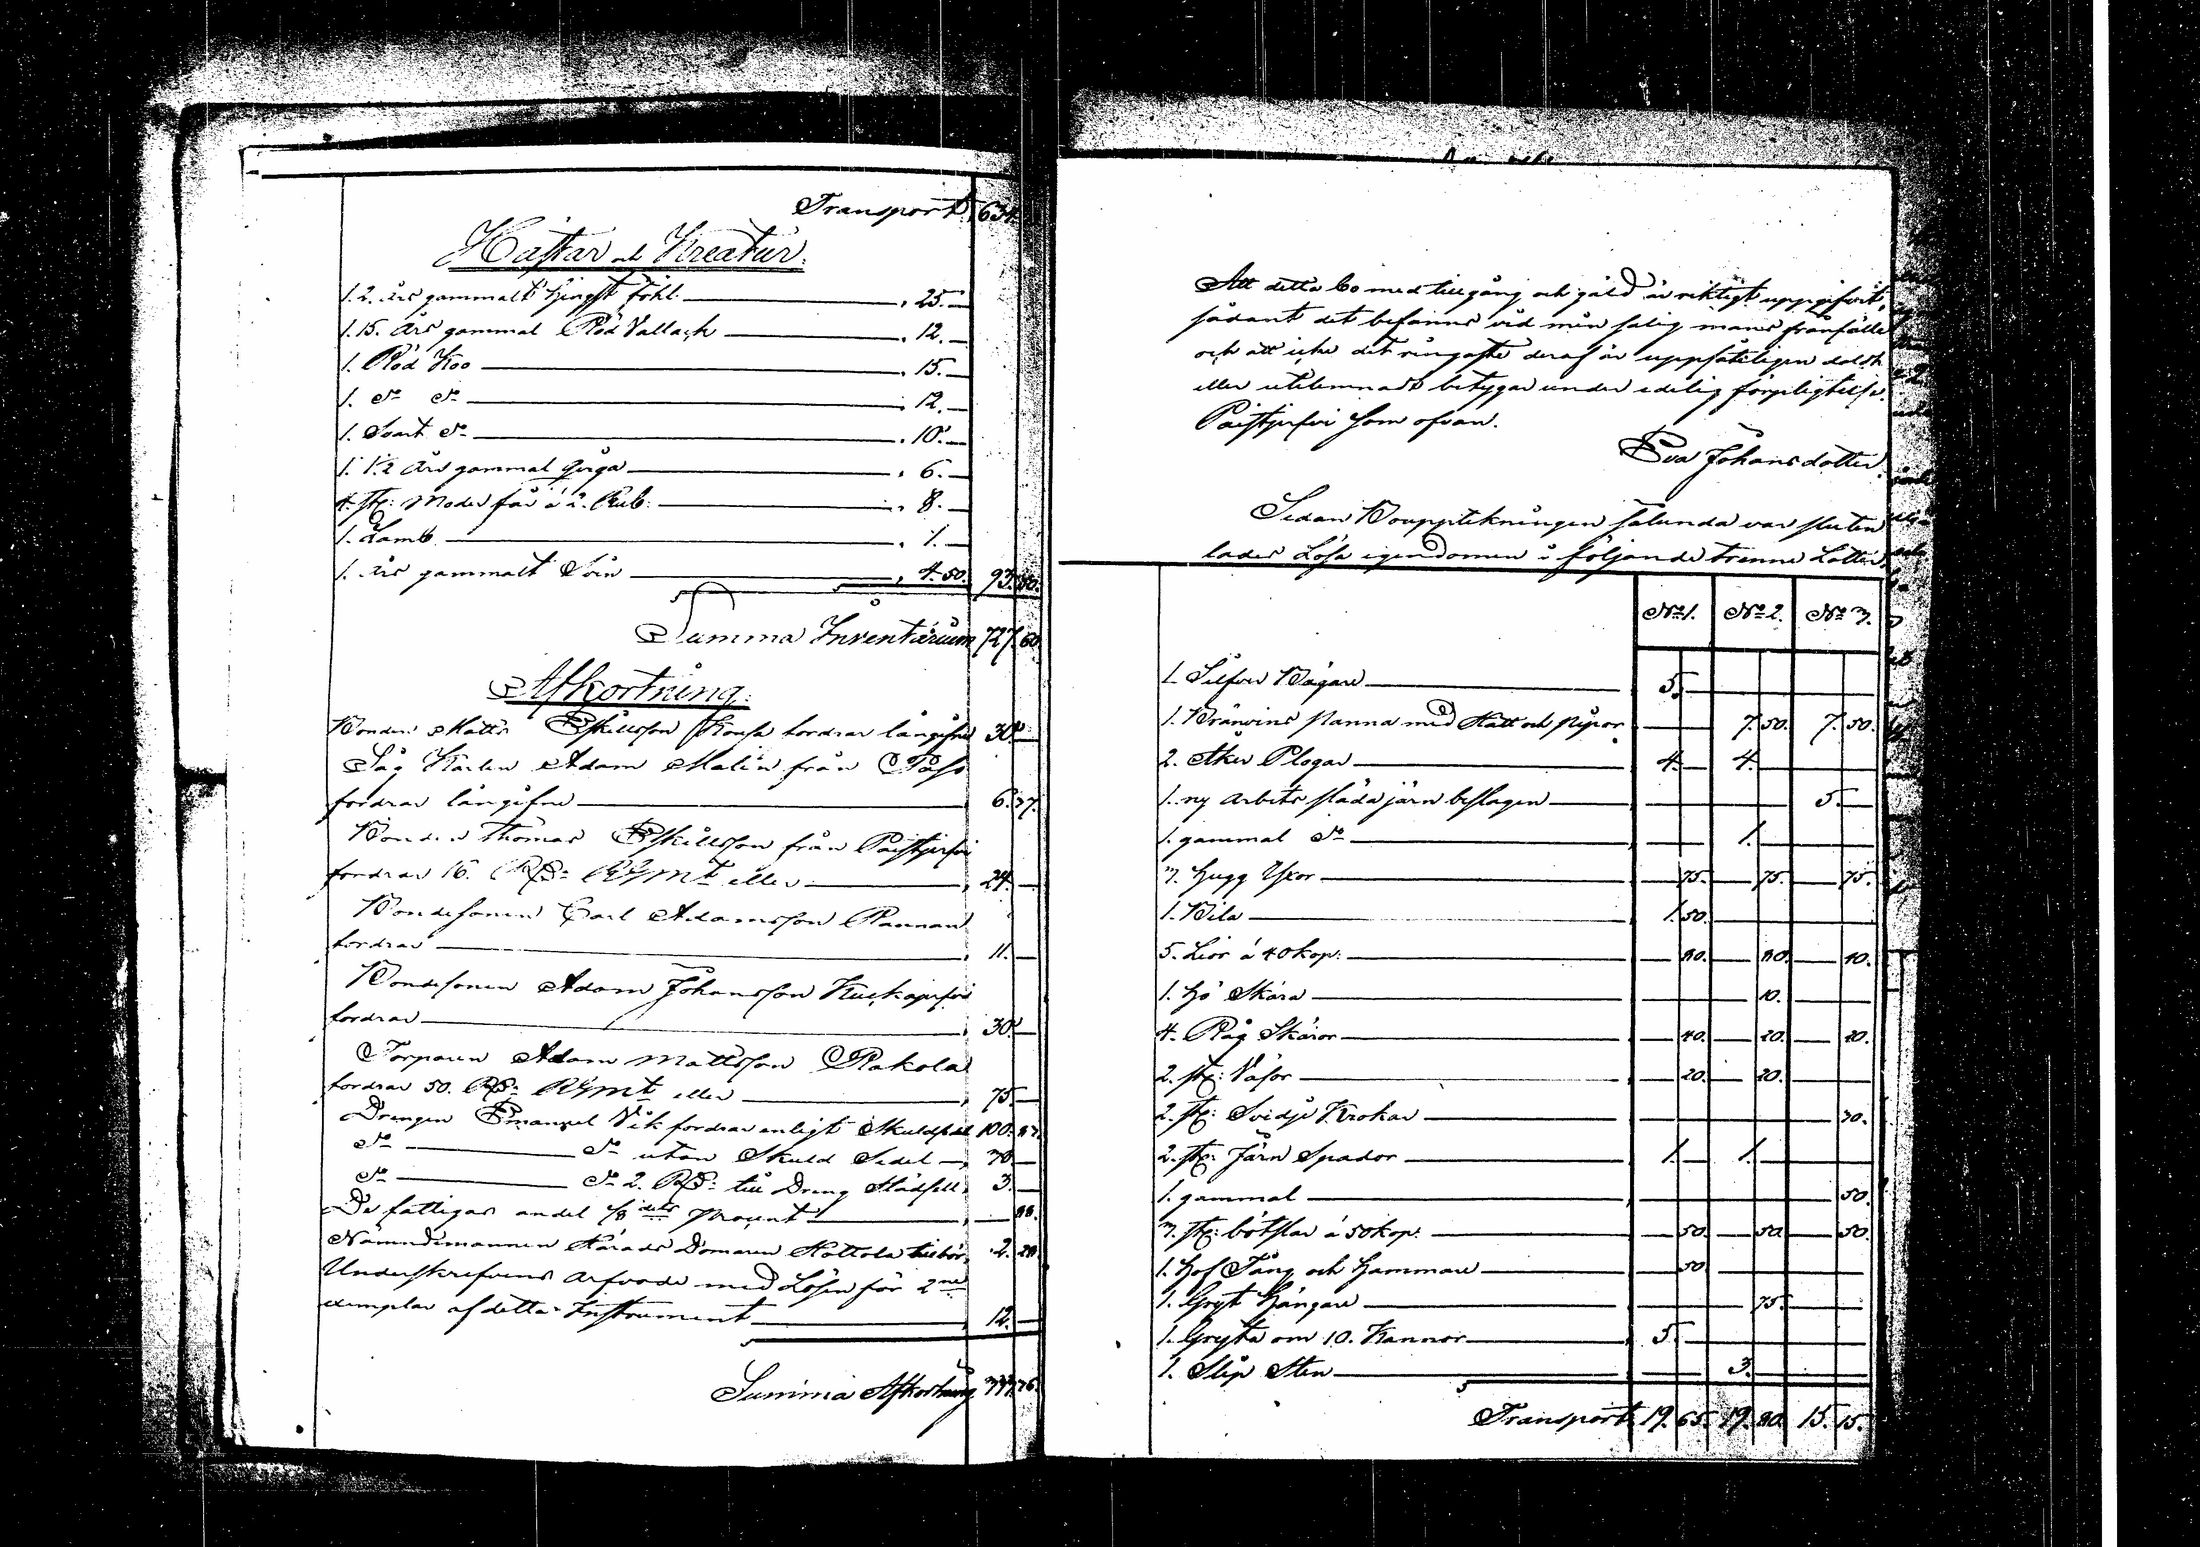 Transport 634.
Hästar och Kreatur.
1. 2. års gammalt hingst föhl " 25. —
1. 15. års gammal Röd Vallach " 12. —
1. Röd Koo " 15. —
1. d:o d:o " 12. —
1. Svart d:o " 10. —
1. 1/2 års gammal qviga " 6. —
4. st: Moder får á 2. Rub: " 8. —
1. Lamb " 1. —
1. års gammalt Svin " 4. 50. 93. 50.
Summa Inventarium 727. 60
Afkortning.
Bonden Matts Eskillsson Kousa fordrar långifne 30. —
Såg Karlen Adam Malin från
fordrar långifne " 6. 37.
Bonden Thomas Eskillsson från Paistjerfvi
fordrar 16. R:S: R:G:Mt eller " 24. —
Bondesonen Carl Adamsson Rannan
fordrar " 11. —
Bondesonen Adam Johansson
fordrar " 30. —
Torparen Adam Mattsson Rakola
fordrar 50. R:S: R:G:Mt eller " 75. —
Drengen Emanuel Vik fordrar enligt Skuldsedel 100.
d:o d:o utan Skuld Sedel —
d:o d:o 2. R:S: till Dreng Städsell 3. —
De fattigas andel 1/8 dels procent " —
Nämndemannen Härads Domaren Hottola tillkör 2.
Underskrefvens arfvode med Lösen för 2ne
exemplar af detta Instrument " 12. —
Summa Afkortning
Att detta bo med tillgång och gäld är riktigt uppgifvit,
sådant det befanns vid min salig mans frånfälle
och att icke det ringaste deraf är uppsåteligen doldt
eller utelemnadt betygar under edelig förpligtelse.
Paistjerfvi som ofvan.
Eva Johansdotter.
Sedan Bouppteckningen sålunda var sluten
lades Lösa egendomen i följande trenne Lotter.
No 1. No 2. No 3.
1. Silfver Bägare 5. —
1. Bränvins panna med Hatt och pipor — 7. 50. 7. 50.
2. Åker Plogar 4. — 4. —
1. ny arbets släda järn beslagen 5. —
1. gammal d:o 1. —
3. hugg Yxor — 75. — 75. — 75.
1. Bila 1. 50.
5. Lior á 40 kop: — 80. — 80. — 40.
1. hö Skära — 10.
4. Råg Skäror — 40. — 20. — 20.
2. st: Våfor — 20. — 20.
2. st: Svidje Krokar — 30.
2. st: Järn Spador 1. — 1. —
1. gammal — 50.
3. st: bötslar á 50 kop: — 50. — 50. — 50.
1. Hof Tång och hammare — 50
1. Gryt hängare — 75.
1. Gryta om 10. Kannor 5. —
1. Slip Sten 3. —
Transport 19. 65. 19. 80. 15. 15.